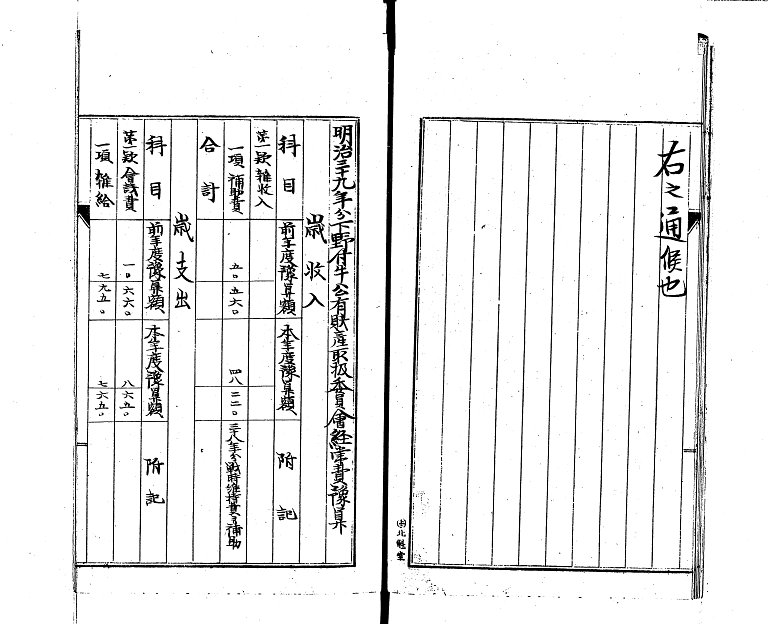 右之通候也
明治三十九年分下野村牛公有財産取扱委員會経常費豫算
歳収入
科目 前年度豫算額 本年度豫算額 附記
第一款 雑收入
一項 補助費 五〇五六〇 四八二二〇 三十八年分戦時維持費ヨリ補助
合計
歳支出
科目 前年度豫算額 本年度豫算額 附記
第一款 會議費 一〇六六〇 八六五〇
一項 雑給 七九五〇 七六五〇
北魁堂